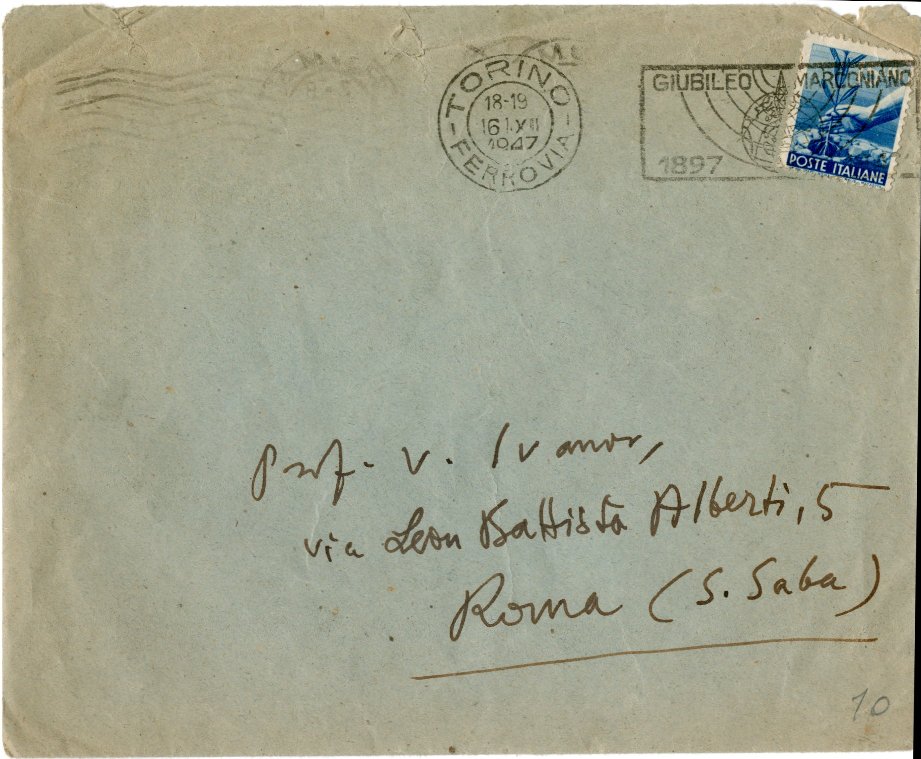 TORINO
18-19
16 1.XII
1947
FERROVIA
GIUBILEO MARCONIANO
1897
POSTE ITALIANE
Prof. V. Ivanov,
via Leon Battista Alberti, 5
Roma (S. Saba)
10